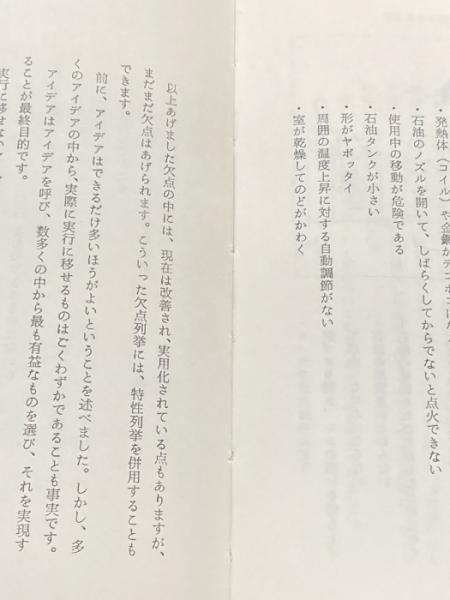 ・発熱体(コイル)や金鋼が
・石油のノズルを開いて、しばらくしてからでないと点火できない
・使用中の移動が危険である
・石油タンクが小さい
・形がヤボッタイ
・周囲の温度上昇に対する自動調節がない
・室が乾燥してのどがかわく
以上あげました欠点の中には、現在は改善され、実用化されている点もありますが、
まだまだ欠点はあげられます。こういった欠点列挙には、特性列挙を併用することも
できます。
前に、アイデアはできるだけ多いほうがよいということを述べました。しかし、多
くのアイデアの中から、実際に実行に移せるものはごくわずかであることも事実です。
アイデアはアイデアを呼び、数多くの中から最も有益なものを選び、それを実現す
ることが最終目的です。
実行に移せない